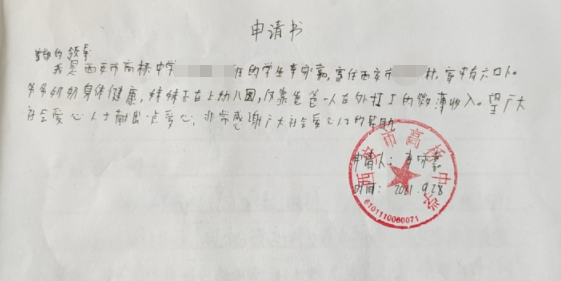 申请书
尊敬的领导
我是西安市高桥中学 班的学生李 ,家住西安市 村,家中有六口人。
爷爷奶奶身体健康,妹妹正在上幼儿园,仅靠爸爸一人在外打工的微薄收入。望广大
社会爱心人士献出一点爱心,非常感谢广大社会爱心人们的帮助
申请人:李
时间:2021.9.28
西安市高桥中学
6101110060071